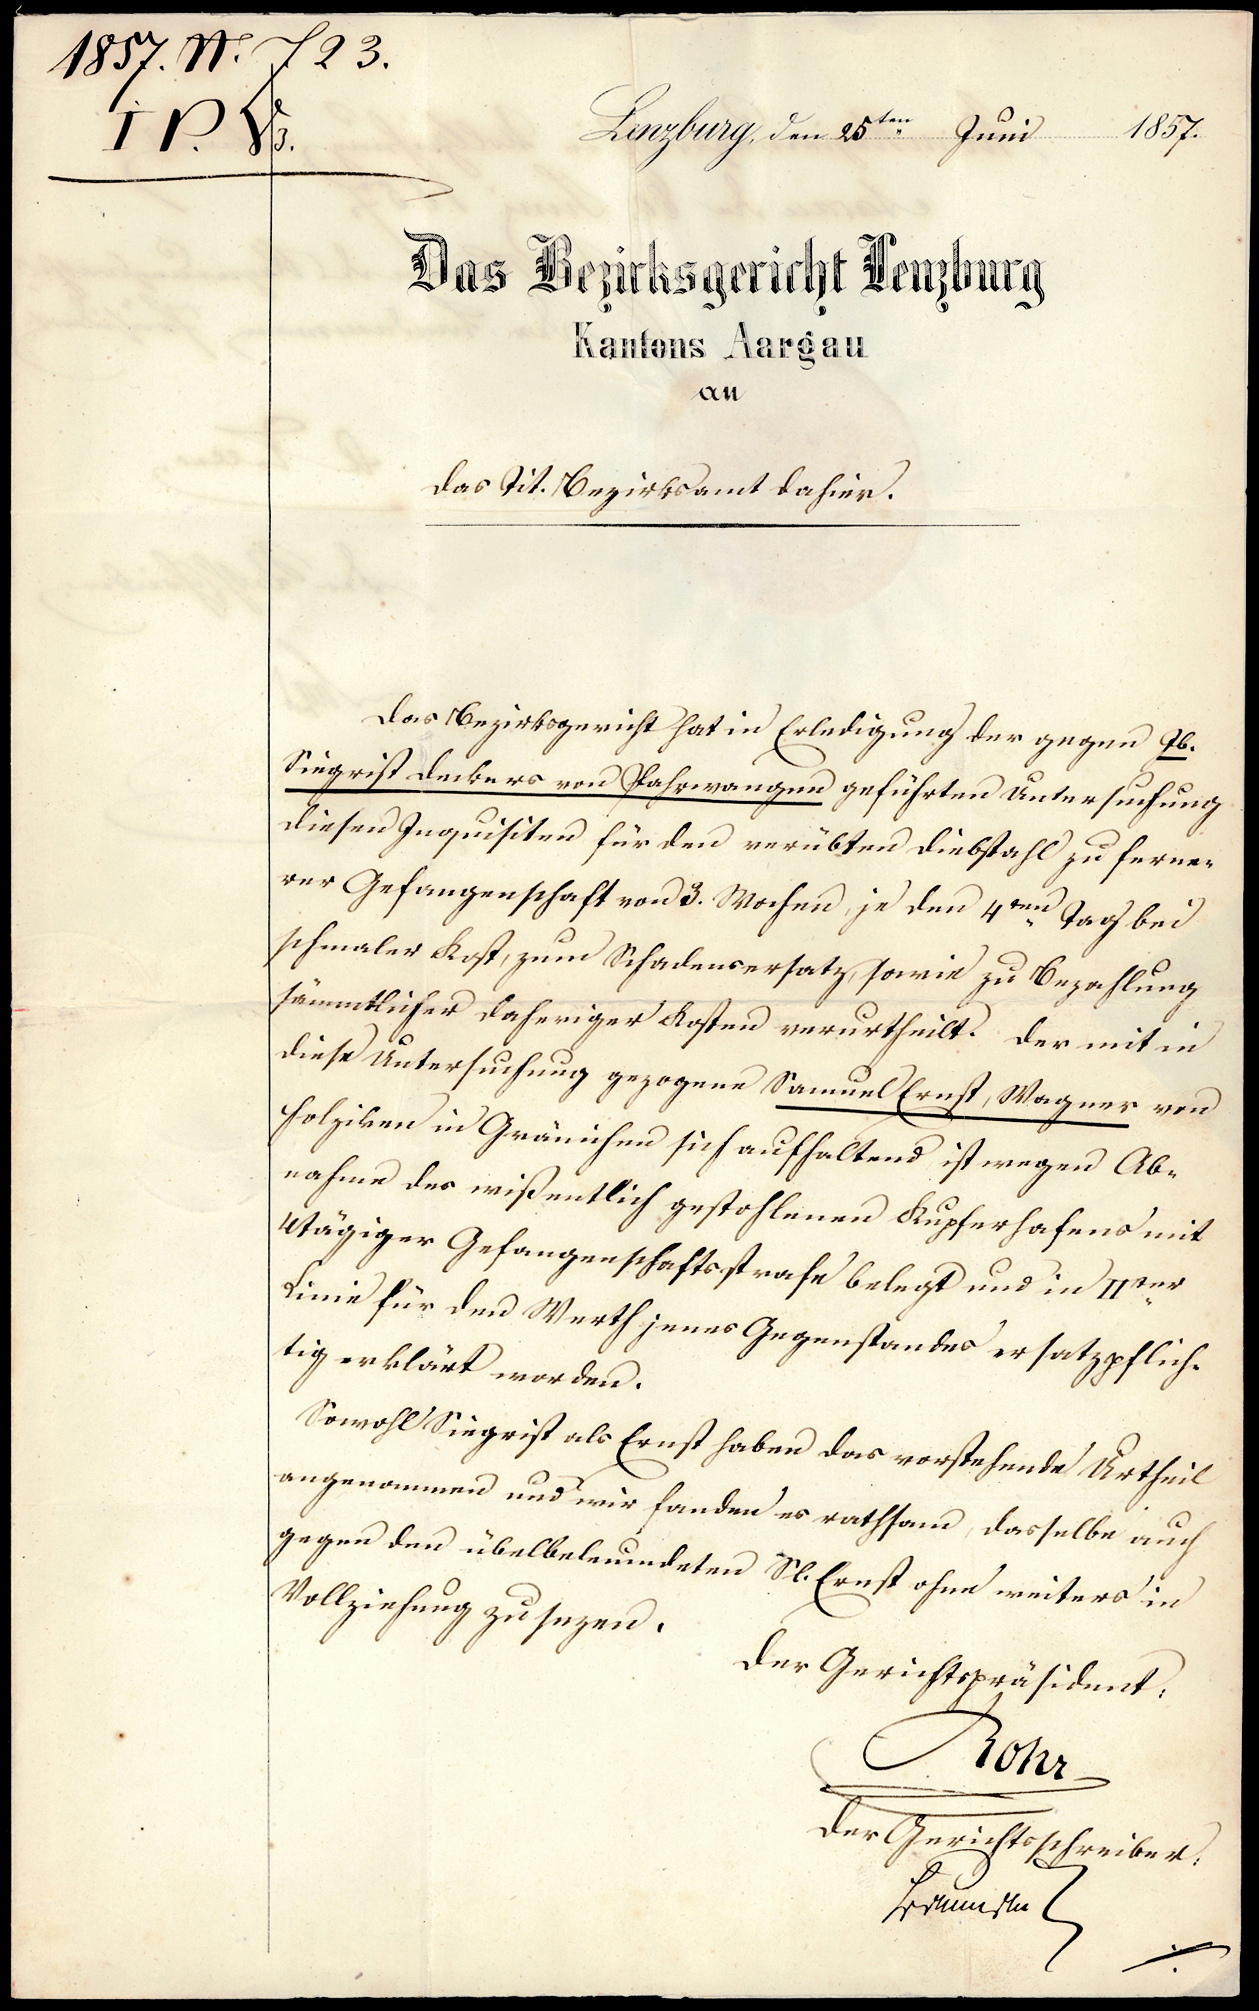 1857. N. 723.
I P. 3.
Lenzburg, den 25ten Juni 1857.
Das Bezirksgericht Lenzburg
Kantons Aargau
an
das Tit. Bezirksamt dahier.
Das Bezirksgericht hat in Erledigung der gegen Jb.
Siegrist Deckers von Fahrwangen geführten Untersuchung
diesen Inquisiten für den verübten Diebstahl zu ferne-
rer Gefangenschaft von 3. Wochen, je den 4ten Tag bei
schmaler Kost, zum Schadensersatz, sowie zu Bezahlung
sämmtlicher daheriger Kosten verurtheilt. Der mit in
diese Untersuchung gezogene Samuel Ernst, Wagner von
Holziken in Gränichen sich aufhaltend ist wegen Ab-
nahme des wißentlich gestohlenen Kupferhafens mit
4tägiger Gefangenschaftsstrafe belegt und in IIter
Linie für den Werth jenes Gegenstandes ersatzpflich-
tig erklärt worden.
Sowohl Siegrist als Ernst haben das vorstehende Urtheil
angenommen und wir fanden es rathsam, dasselbe auch
gegen den übelbeleumdeten Sl. Ernst ohne weiters in
Vollziehung zu sezen.
Der Gerichtspräsident:
Rohr
Der Gerichtsschreiber: